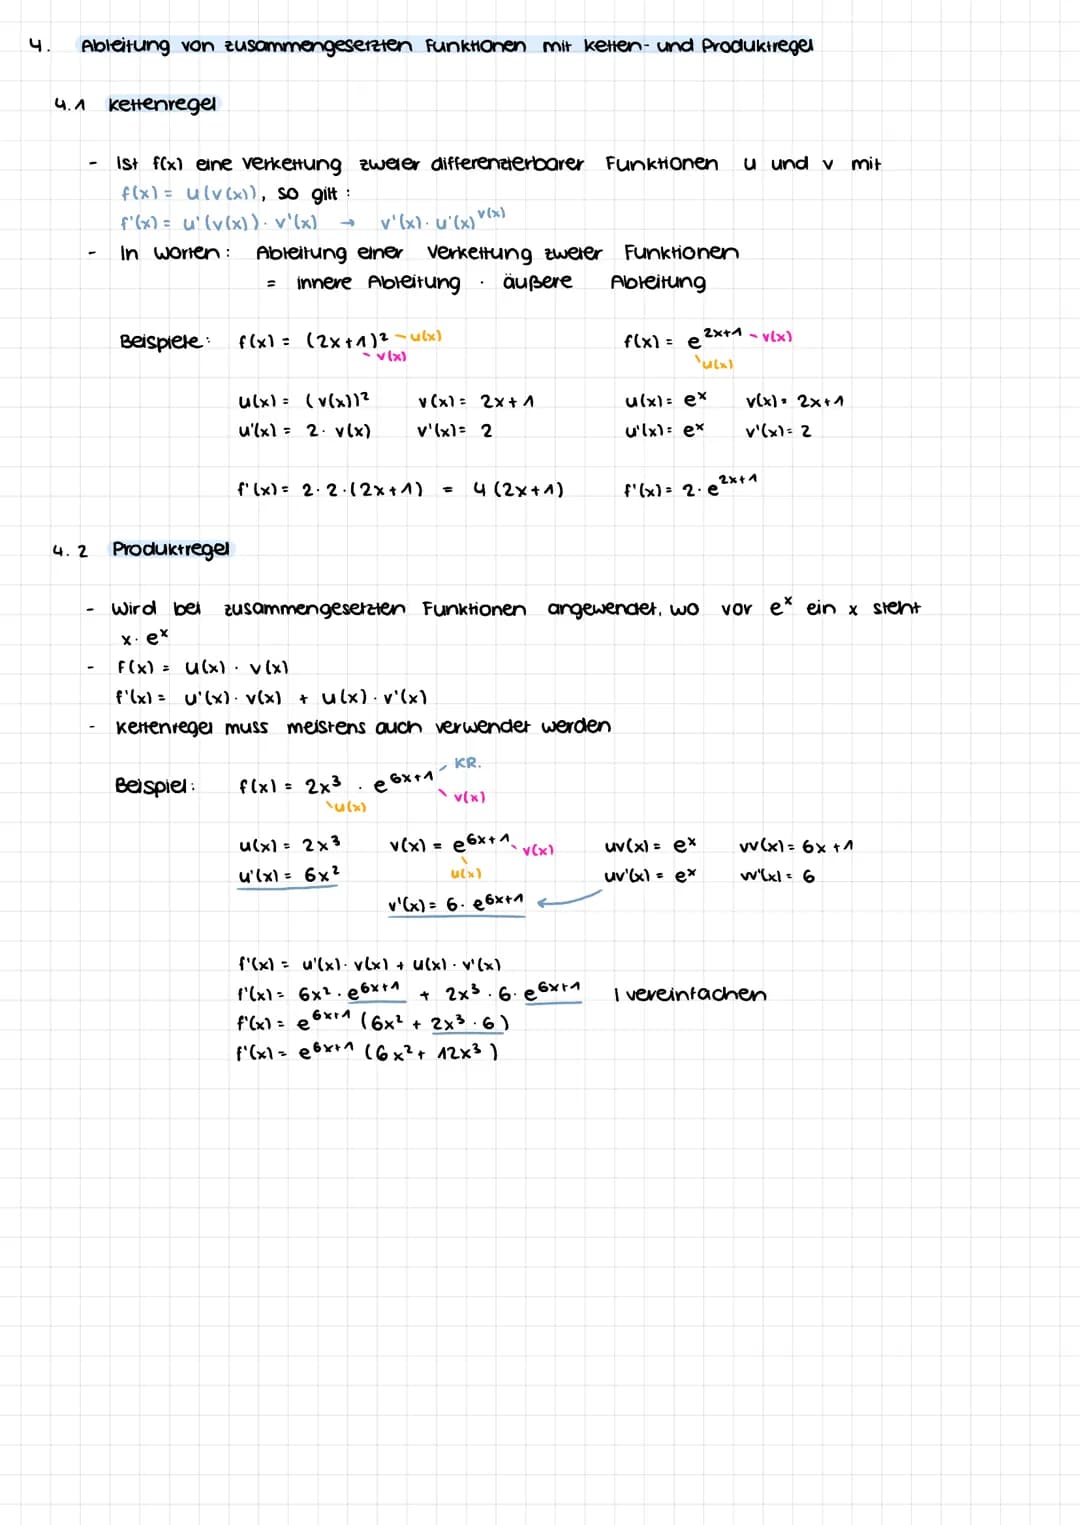 4. Ableitung von zusammengesetzten Funktionen mit Ketten- und Produktregel
4.1 Kettenregel
- Ist f(x) eine Verkettung zweier differenzierbarer Funktionen u und v mit
f(x) = u(v(x)), so gilt:
f'(x) = u'(v(x)) · v'(x) → v'(x) · u'(x)^v(x)
- In Worten: Ableitung einer Verkettung zweier Funktionen
= innere Ableitung · äußere Ableitung
Beispiele: f(x) = (2x+1)² - u(x) f(x) = e^2x+1 - v(x)
- v(x) u(x)
u(x) = (v(x))² v(x) = 2x+1 u(x) = e^x v(x) = 2x+1
u'(x) = 2 · v(x) v'(x) = 2 u'(x) = e^x v'(x) = 2
f'(x) = 2·2·(2x+1) = 4(2x+1) f'(x) = 2·e^2x+1
4.2 Produktregel
- Wird bei zusammengesetzten Funktionen angewendet, wo vor e^x ein x steht
x · e^x
- f(x) = u(x) · v(x)
f'(x) = u'(x) · v(x) + u(x) · v'(x)
- Kettenregel muss meistens auch verwendet werden
KR.
Beispiel: f(x) = 2x³ · e^6x+1
u(x) v(x)
u(x) = 2x³ v(x) = e^6x+1 v(x) uv(x) = e^x vv(x) = 6x+1
u'(x) = 6x² u(x) uv'(x) = e^x vv'(x) = 6
v'(x) = 6 · e^6x+1 ←
f'(x) = u'(x) · v(x) + u(x) · v'(x)
f'(x) = 6x² · e^6x+1 + 2x³ · 6 · e^6x+1 | vereinfachen
f'(x) = e^6x+1 (6x² + 2x³ · 6)
f'(x) = e^6x+1 (6x² + 12x³)